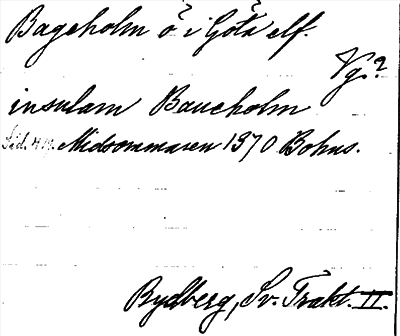 Bageholm ö i Göta elf.
Vg.?
insulam Baueholm
Midsommaren 1370 Bohus.
Rydberg, Sv. Trakt. II.